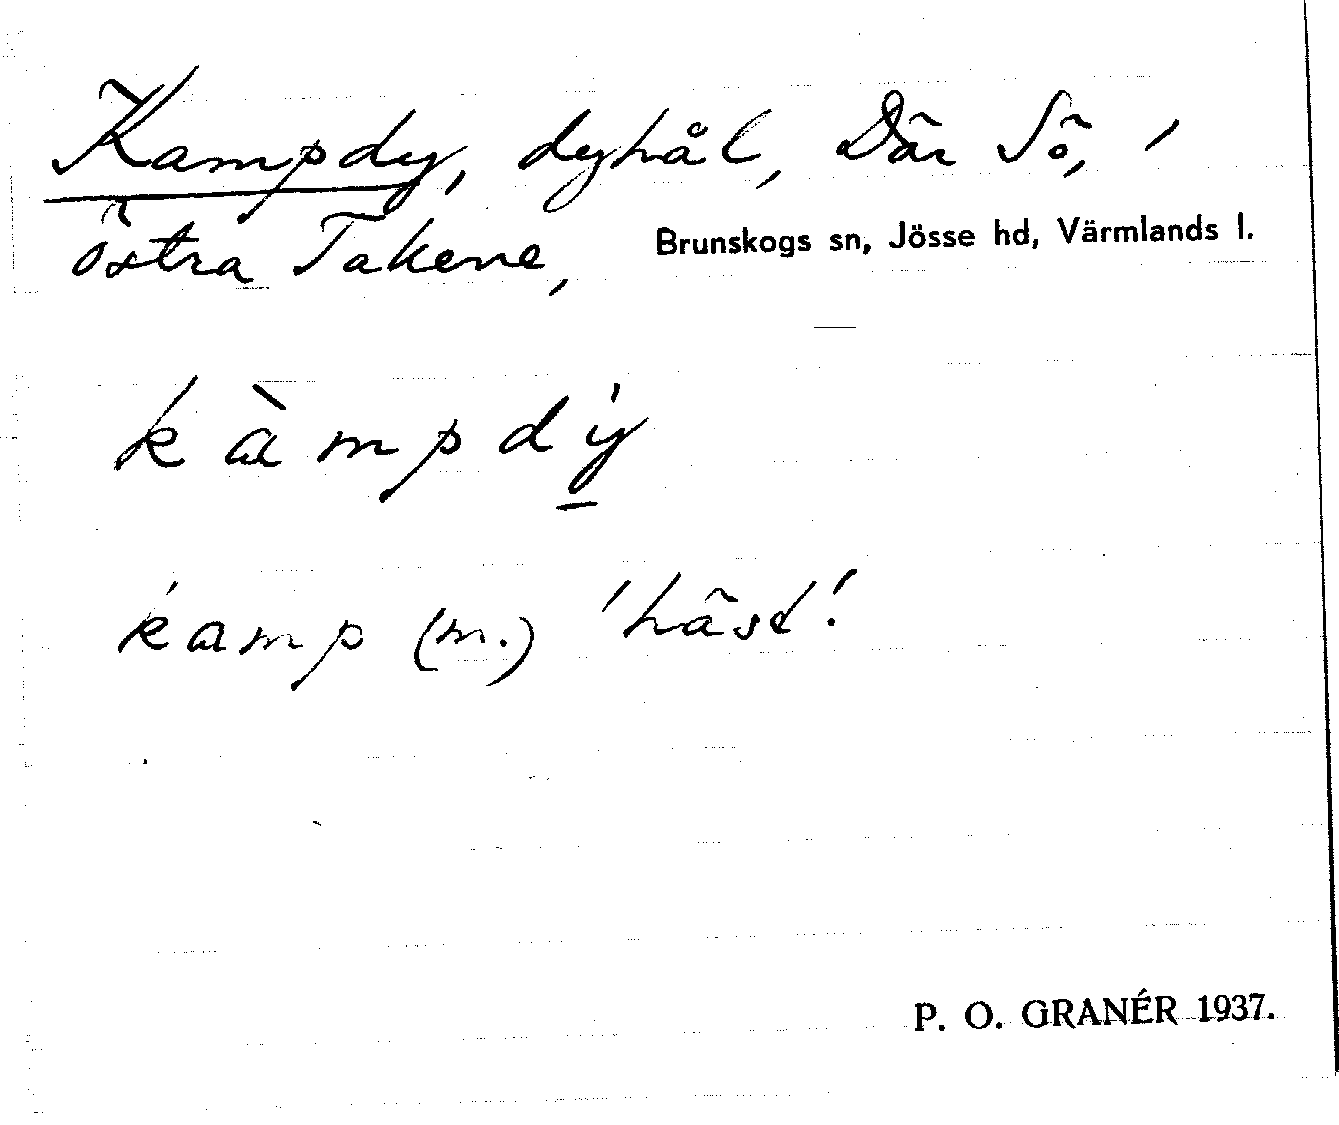 Kampdy, dyhål, Där Sö, i
östra Takene, Brunskogs sn, Jösse hd, Värmlands l.
kàmpdý
kamp (m.) 'häst'.
P. O. GRANÉR 1937.